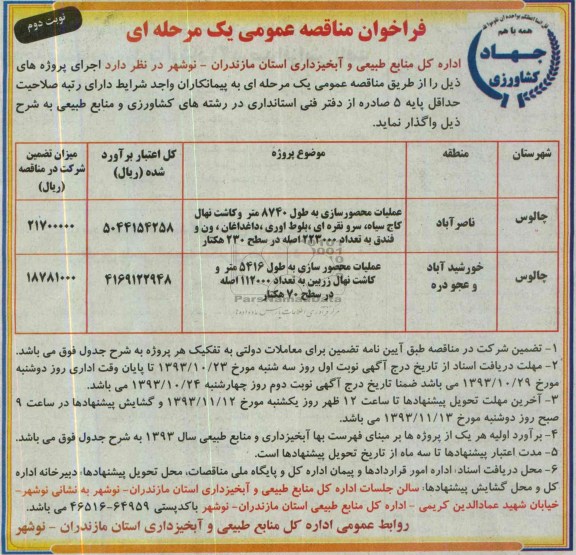 نوبت دوم
فراخوان مناقصه عمومی یک مرحله ای
همه با هم
جهاد
کشاورزی
اداره کل منابع طبیعی و آبخیزداری استان مازندران - نوشهر در نظر دارد اجرای پروژه های
ذیل را از طریق مناقصه عمومی یک مرحله ای به پیمانکاران واجد شرایط دارای رتبه صلاحیت
حداقل پایه ۵ صادره از دفتر فنی استانداری در رشته های کشاورزی و منابع طبیعی به شرح
ذیل واگذار نماید.
شهرستان منطقه موضوع پروژه کل اعتبار برآورد شده (ریال) میزان تضمین شرکت در مناقصه (ریال)
چالوس ناصرآباد عملیات محصورسازی به طول ۸۷۴۰ متر وکاشت نهال
کاج سیاه، سرو نقره ای ،بلوط اوری ،داغداغان ، ون و
فندق به تعداد ۲۲۳۰۰۰اصله در سطح ۲۳۰ هکتار ۵۰۴۴۱۵۴۲۵۸ ۲۱۷۰۰۰۰۰
چالوس خورشید آباد و عجو دره عملیات محصور سازی به طول ۵۴۱۶ متر و
کاشت نهال زربین به تعداد ۱۱۲۰۰۰ اصله
در سطح ۷۰ هکتار ۴۱۶۹۱۲۲۹۴۸ ۱۸۷۸۱۰۰۰
ParsNamadData
۱- تضمین شرکت در مناقصه طبق آیین نامه تضمین برای معاملات دولتی به تفکیک هر پروژه به شرح جدول فوق می باشد.
۲- مهلت دریافت اسناد از تاریخ درج آگهی نوبت اول روز سه شنبه مورخ ۱۳۹۳/۱۰/۲۳ تا پایان وقت اداری روز دوشنبه
مورخ ۱۳۹۳/۱۰/۲۹ می باشد ضمنا تاریخ درج آگهی نوبت دوم روز چهارشنبه ۱۳۹۳/۱۰/۲۴ می باشد.
۳- آخرین مهلت تحویل پیشنهادها تا ساعت ۱۲ ظهر روز یکشنبه مورخ ۱۳۹۳/۱۱/۱۲ و گشایش پیشنهادها در ساعت ۹
صبح روز دوشنبه مورخ ۱۳۹۳/۱۱/۱۳ می باشد.
۴- برآورد اولیه هر یک از پروژه ها بر مبنای فهرست بها آبخیزداری و منابع طبیعی سال ۱۳۹۳ به شرح جدول فوق می باشد.
۵- مدت اعتبار پیشنهادها تا سه ماه از تاریخ تحویل پیشنهادها است.
۶- محل دریافت اسناد: اداره امور قراردادها و پیمان اداره کل و پایگاه ملی مناقصات، محل تحویل پیشنهادها: دبیرخانه اداره
کل و محل گشایش پیشنهادها: سالن جلسات اداره کل منابع طبیعی و آبخیزداری استان مازندران- نوشهر به نشانی نوشهر-
خیابان شهید عمادالدین کریمی - اداره کل منابع طبیعی استان مازندران- نوشهر باکدپستی ۶۴۹۵۹-۴۶۵۱۶ می باشد.
روابط عمومی اداره کل منابع طبیعی و آبخیزداری استان مازندران - نوشهر